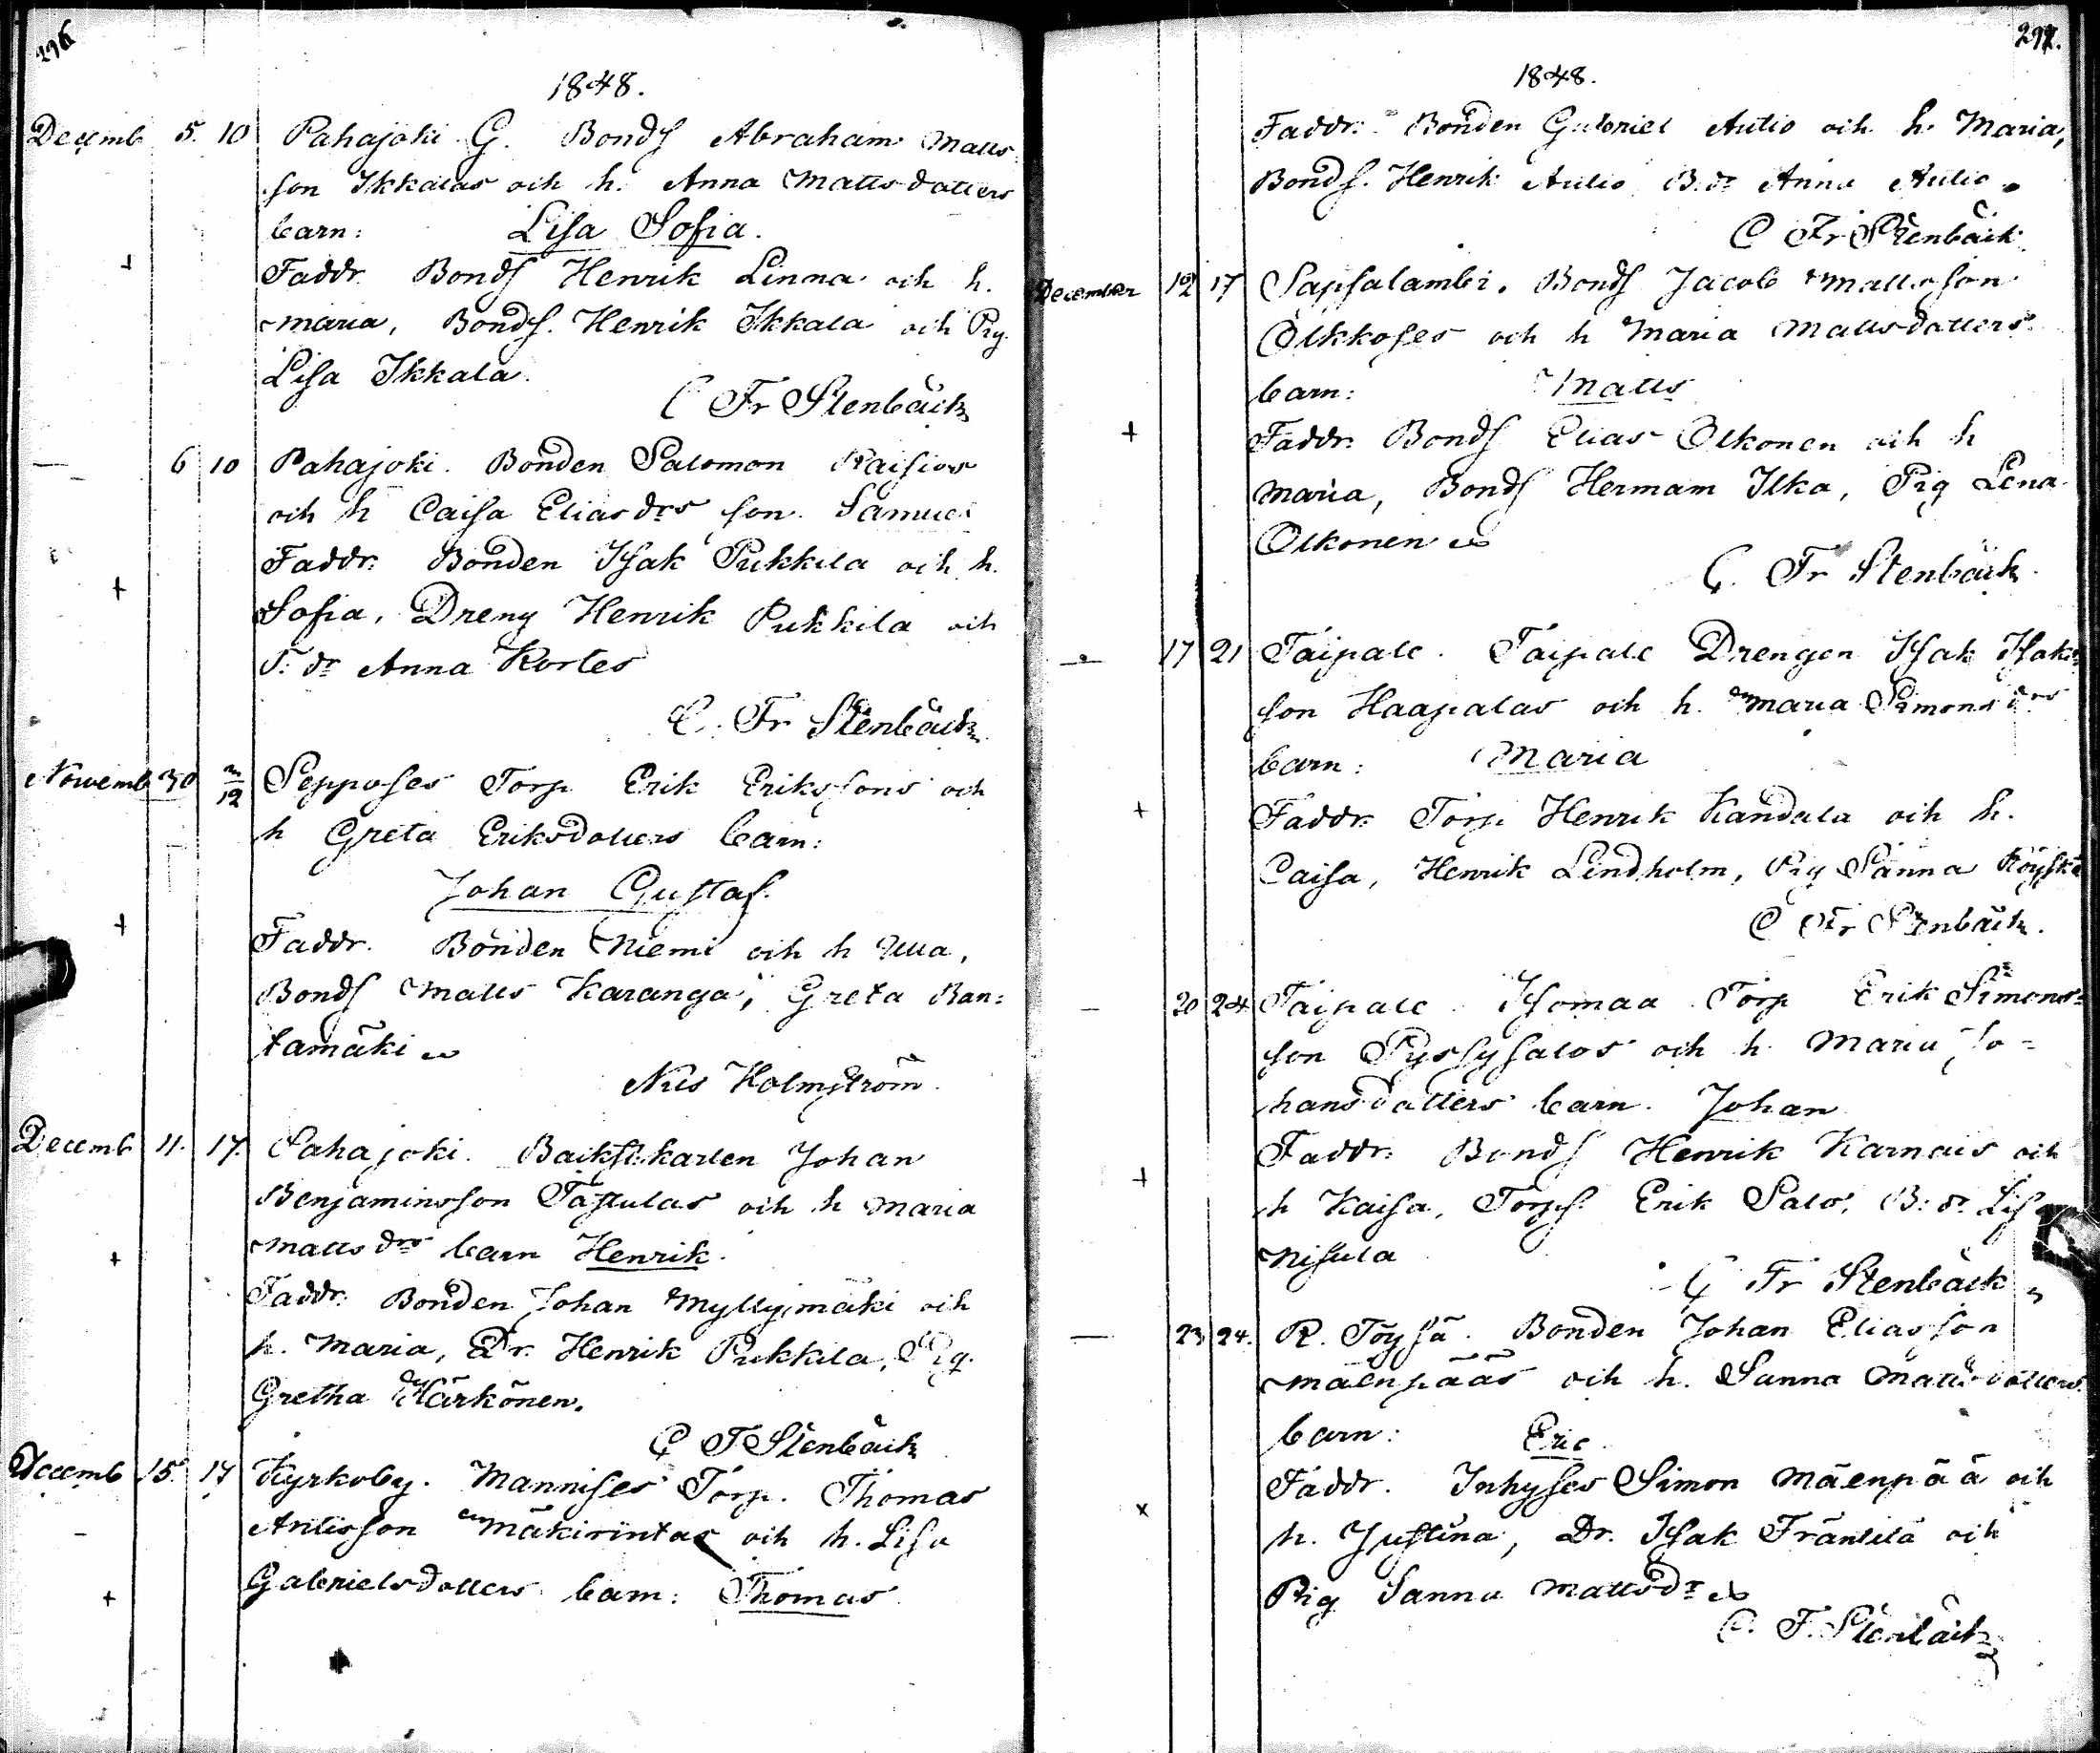 296
1848.
Decemb 5. 10 Pahajoki G. Bonds Abraham Matts
son Ikkalas och h. Anna Mattsdotters
barn: Lisa Sofia.
Faddr. Bonds Henrik Linna och h.
Maria, Bonds. Henrik Ikkala och Pig.
Lisa Ikkala.
C Fr Stenbäck
— 6 10 Pahajoki. Bonden Salomon Kaisios
och h Caisa Eliasdrs son. Samuel
Faddr. Bonden Isak Pukkila och h.
Sofia, Dreng Henrik Pukkila och
T. dr Anna Kortes
C. Fr Stenbäck
Novemb 30 3/12 Sepposes Torp Erik Erikssons och
h Greta Eriksdotters barn:
Johan Gustaf.
Faddr. Bonden Niemi och h Ulla,
Bonds Matts Karanga, Greta Ran=
tamäki
Nils Holmström.
Decemb 11. 17. Pahajoki. Backstukarlen Johan
Benjaminsson Tastulas och h Maria
Matts drs barn Henrik.
Faddr. Bonden Johan Myllymäki och
h. Maria, Dr. Henrik Pukkila, Pig.
Gretha Härkönen.
C F Stenbäck
Decemb 15. 17 Kyrkoby. Mannises Torp. Thomas
Antisson Mäkirintas och h. Lisa
Gabrielsdotters barn: Thomas
297.
1848.
Faddr. Bonden Gabriel Autio och h. Maria,
Bonds. Henrik Autio B. dr Anna Autio
C Fr Stenbäck
December 12 17 Sapsalambi. Bonds Jacob Mattsson
Olkkoses och h Maria Mattsdotters
barn: Matts
Faddr. Bonds Elias Olkonen och h
Maria, Bonds Hermam Ilka, Pig Lena
Olkonen
C. Fr Stenbäck.
— 17 21 Taipale. Taipale Drengen Isak Isaks
son Haapalas och h. Maria Simons drs
barn: Maria
Faddr. Torp. Henrik Kandala och h.
Caisa, Henrik Lindholm, Pig Sanna
C Fr Stenbäck.
— 20 24 Taipale. Isomaa Torp Erik Simons=
son Pyssysalos och h. Maria Jo=
hansdotters barn. Johan
Faddr. Bonds Henrik Karnais och
h Kaisa, Torps. Erik Salo, B: dr. Lisa
Nisula
C Fr Stenbäck
— 23 24. R. Töysä. Bonden Johan Eliasson
Mäenpääs och h. Sanna Mattsdotters
barn: Eric
Faddr. Inhyses Simon Mäenpää och
h. Justina, Dr. Isak Fränlilä och
Pig Sanna Mattsdr
C. F. Stenbäck